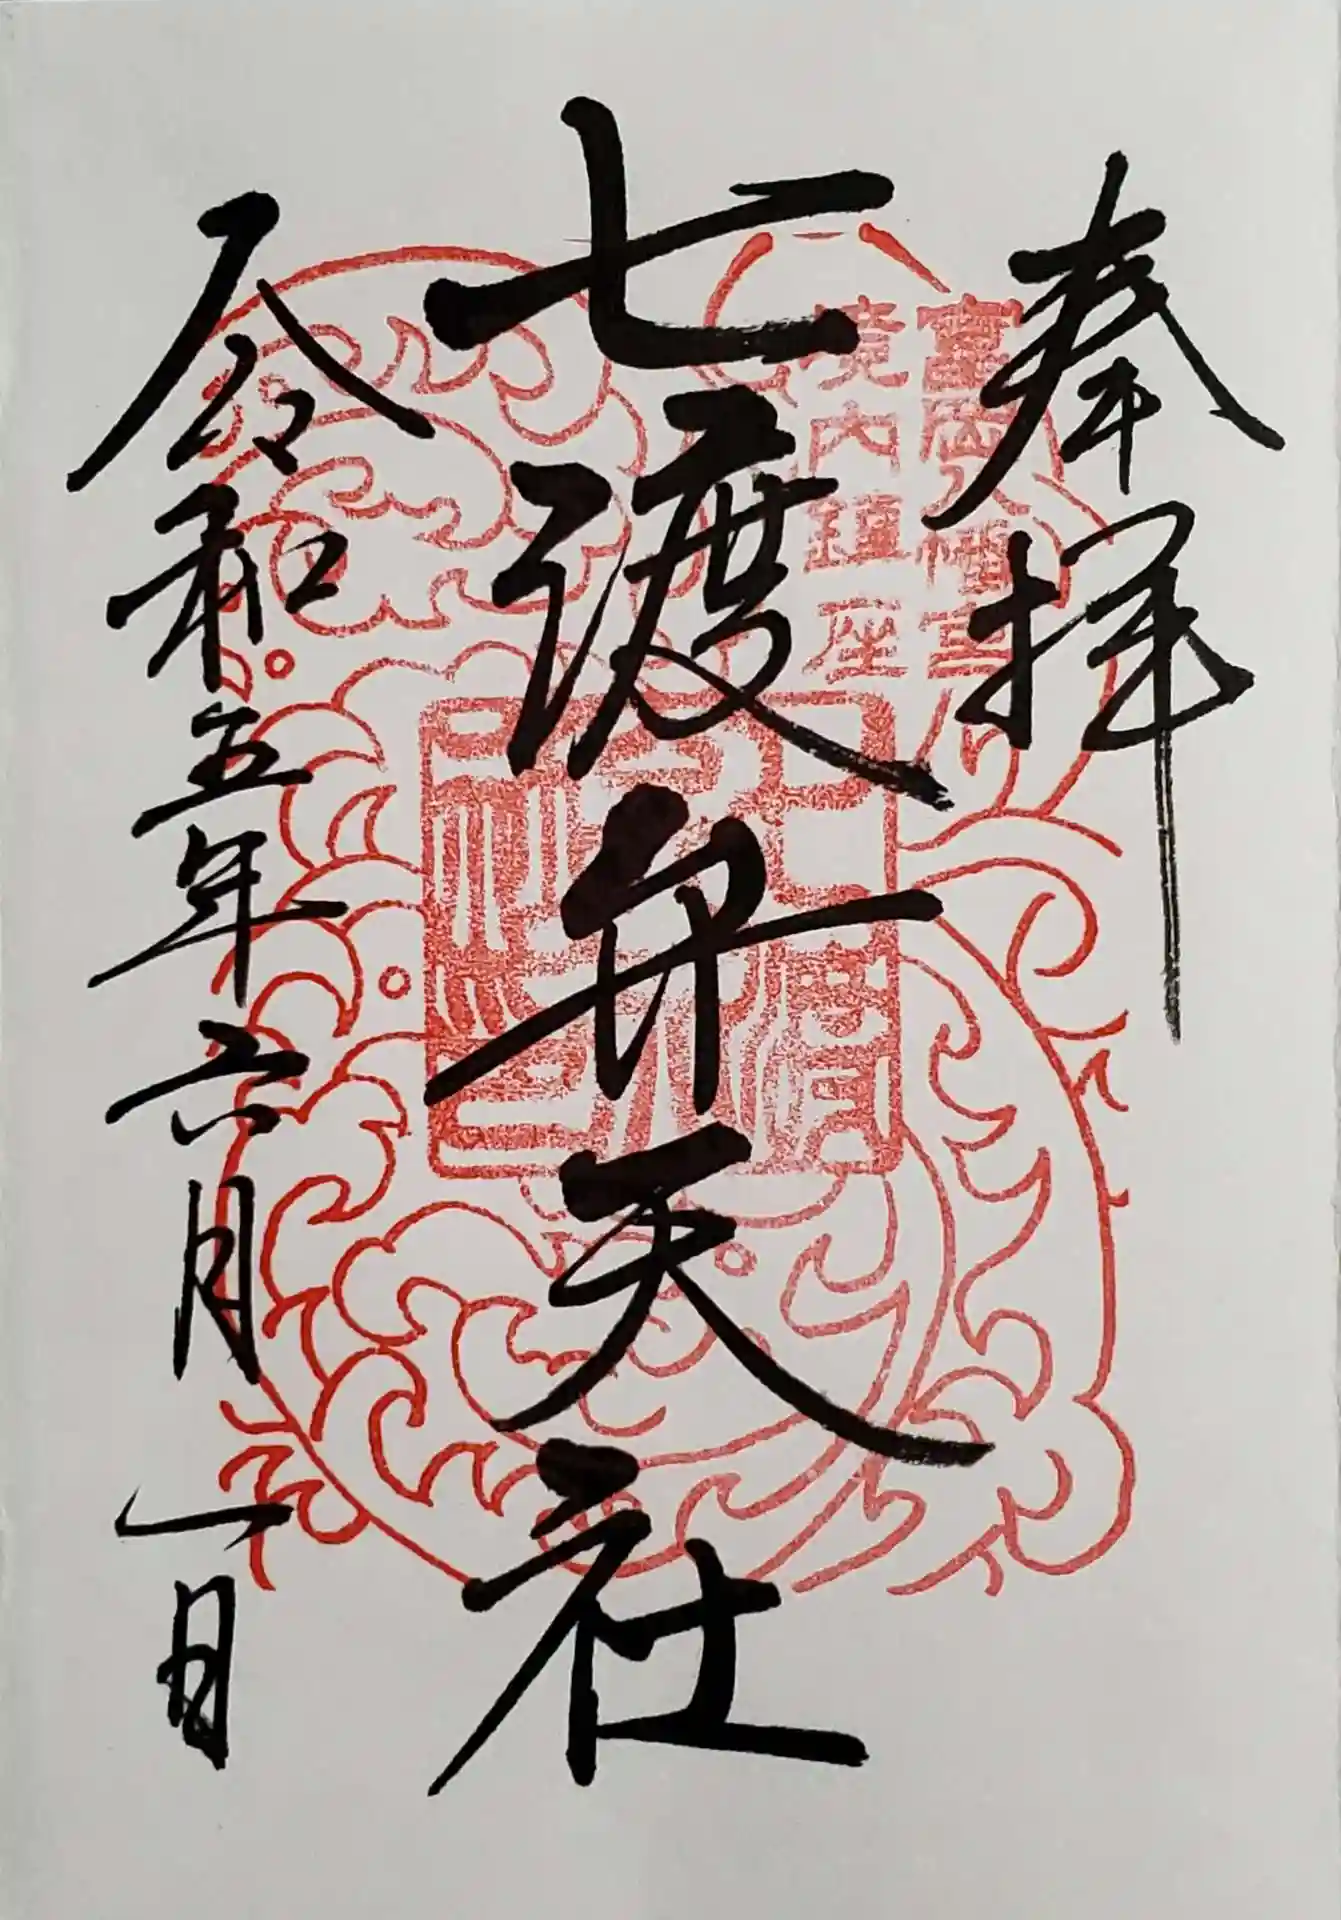 奉拝
富岡八幡宮
境内鎮座
七渡弁天社
令和五年六月一日